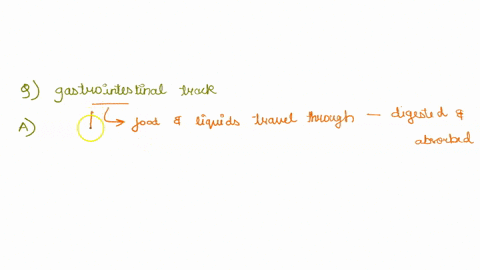 Q) gastrointestinal track
A) food & liquids travel through – digested &
absorbed